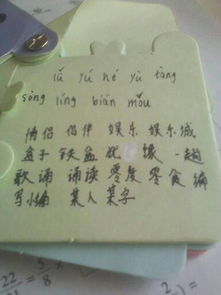 lǚ yú hé yù tàng
sòng líng biān mǒu
情侣 侣伴 娱乐 娱乐城
盒子 铁盒 犹豫 一趟
歌诵 诵读 零度 零食 编
写 小编 某人 某字
22 5 8